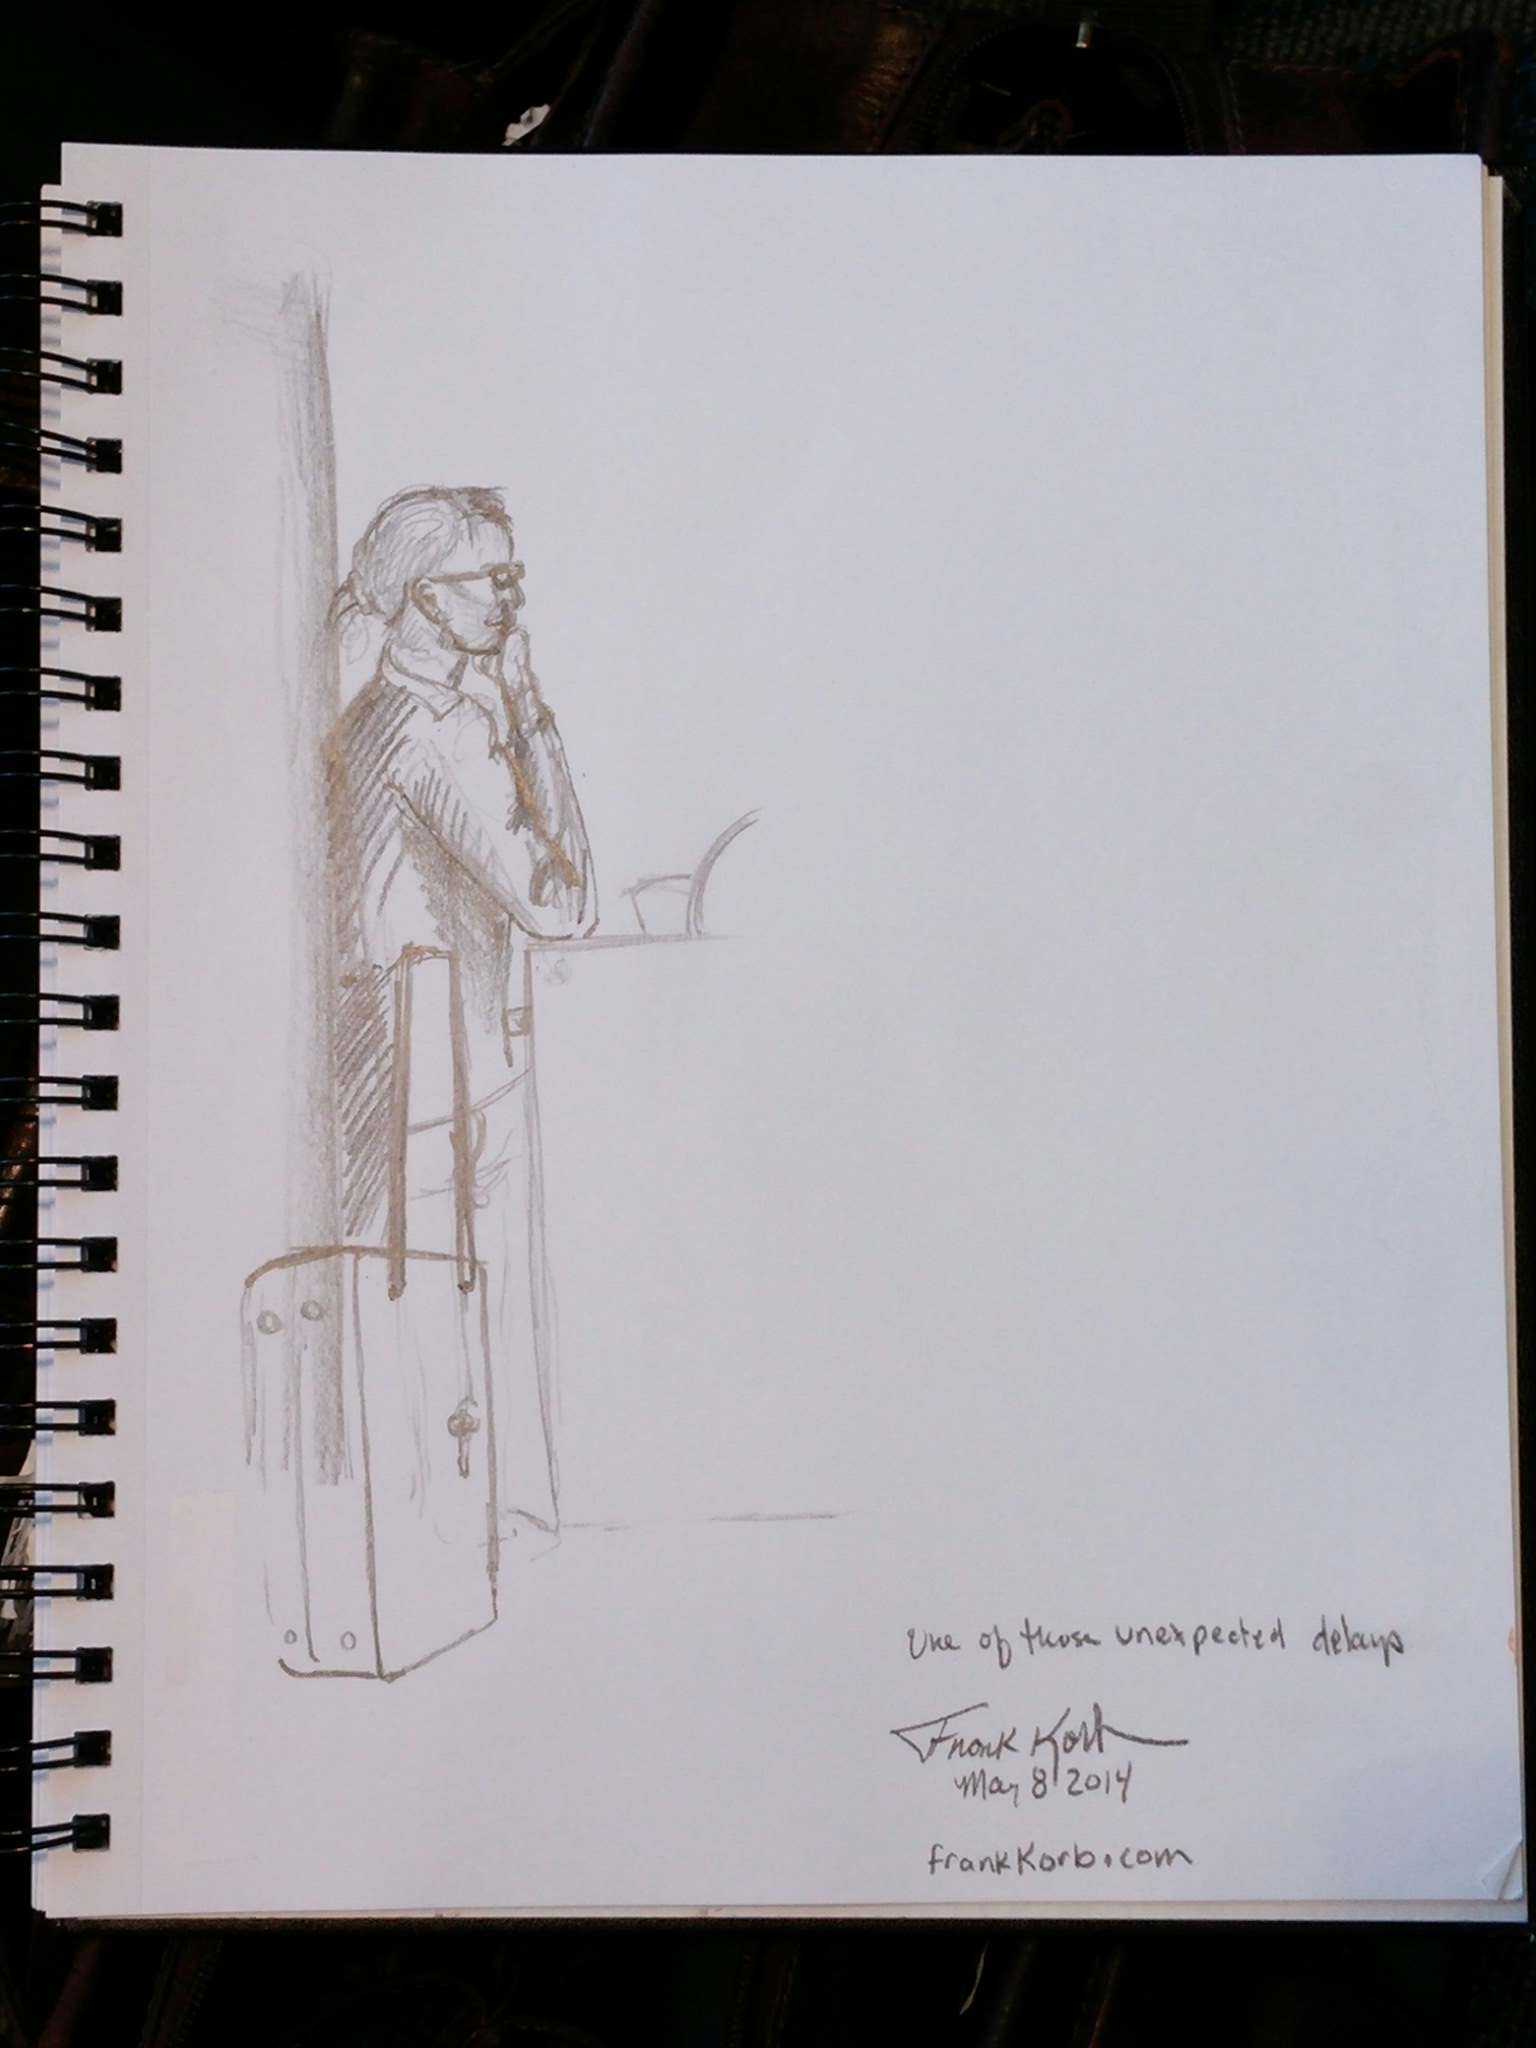 One of those unexpected delays
Frank Korb
May 8 2014
frankKorb.com